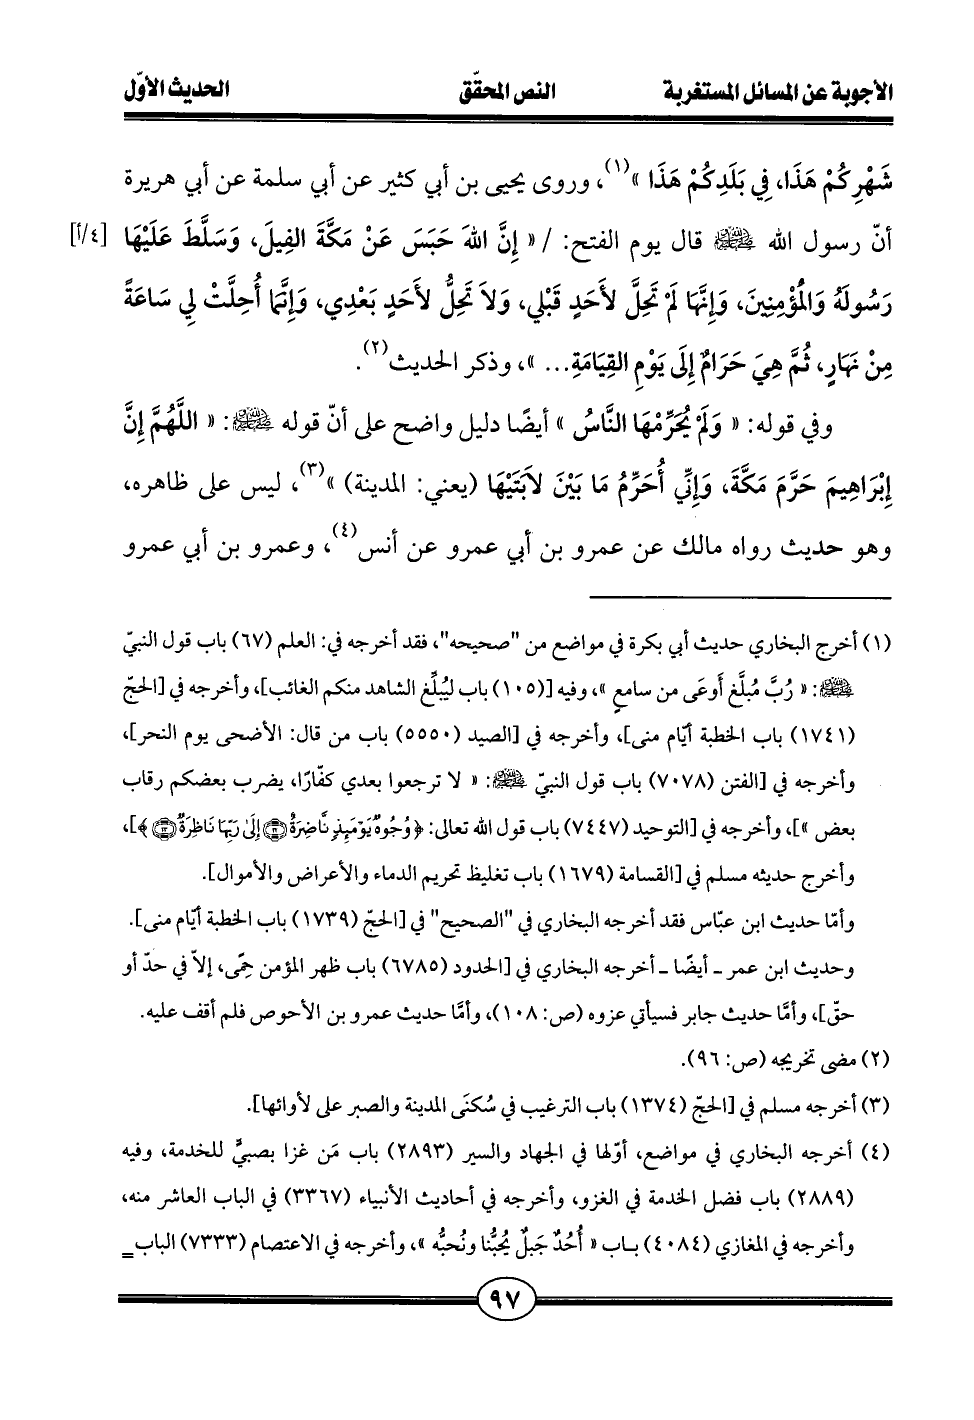 الأجوبة عن المسائل المستغربة النص المحقّق الحديث الأوّل
شَهْرِكُمْ هَذَا، فِي بَلَدِكُمْ هَذَا »(١)، وروى يحيى بن أبي كثير عن أبي سلمة عن أبي هريرة
أنّ رسول الله ﷺ قال يوم الفتح: / « إِنَّ اللهَ حَبَسَ عَنْ مَكَّةَ الفِيلَ، وَسَلَّطَ عَلَيْهَا [٤/أ]
رَسُولَهُ وَالمُؤْمِنِينَ، وَإِنَّهَا لَمْ تَحِلَّ لأَحَدٍ قَبْلِي، وَلاَ تَحِلُّ لأَحَدٍ بَعْدِي، وَإِنَّمَا أُحِلَّتْ لِي سَاعَةً
مِنْ نَهَارٍ، ثُمَّ هِيَ حَرَامٌ إِلَى يَوْمِ القِيَامَةِ... »، وذكر الحديث(٢).
وفي قوله: « وَلَمْ يُحَرِّمْهَا النَّاسُ » أيضًا دليل واضح على أنّ قوله ﷺ: « اللَّهُمَّ إِنَّ
إِبْرَاهِيمَ حَرَّمَ مَكَّةَ، وَإِنِّي أُحَرِّمُ مَا بَيْنَ لاَبَتَيْهَا (يعني: المدينة) »(٣)، ليس على ظاهره،
وهو حديث رواه مالك عن عمرو بن أبي عمرو عن أنس(٤)، وعمرو بن أبي عمرو
(١) أخرج البخاري حديث أبي بكرة في مواضع من "صحيحه"، فقد أخرجه في: العلم (٦٧) باب قول النبيّ
ﷺ: « رُبَّ مُبلَّغ أَوعَى من سامعٍ »، وفيه [(١٠٥) باب ليُبلِّغ الشاهد منكم الغائب]، وأخرجه في [الحجّ
(١٧٤١) باب الخطبة أيّام منى]، وأخرجه في [الصيد (٥٥٥٠) باب من قال: الأضحى يوم النحر]،
وأخرجه في [الفتن (٧٠٧٨) باب قول النبيّ ﷺ: « لا ترجعوا بعدي كفّارًا، يضرب بعضكم رقاب
بعض »]، وأخرجه في [التوحيد (٧٤٤٧) باب قول الله تعالى: ﴿وُجُوهٌ يَوْمَئِذٍ نَّاضِرَةٌ ۝٢٢ إِلَىٰ رَبِّهَا نَاظِرَةٌ ۝٢٣﴾]،
وأخرج حديثه مسلم في [القسامة (١٦٧٩) باب تغليظ تحريم الدماء والأعراض والأموال].
وأمّا حديث ابن عبّاس فقد أخرجه البخاري في "الصحيح" في [الحجّ (١٧٣٩) باب الخطبة أيّام منى].
وحديث ابن عمر ـ أيضًا ـ أخرجه البخاري في [الحدود (٦٧٨٥) باب ظهر المؤمن حِمًى، إلاّ في حدّ أو
حقّ]، وأمَّا حديث جابر فسيأتي عزوه (ص: ١٠٨)، وأمَّا حديث عمرو بن الأحوص فلم أقف عليه.
(٢) مضى تخريجه (ص: ٩٦).
(٣) أخرجه مسلم في [الحجّ (١٣٧٤) باب الترغيب في سُكنَى المدينة والصبر على لأوائها].
(٤) أخرجه البخاري في مواضع، أوّلها في الجهاد والسير (٢٨٩٣) باب مَن غزا بصبيٍّ للخدمة، وفيه
(٢٨٨٩) باب فضل الخدمة في الغزو، وأخرجه في أحاديث الأنبياء (٣٣٦٧) في الباب العاشر منه،
وأخرجه في المغازي (٤٠٨٤) باب « أُحُدٌ جَبلٌ يُحبُّنا ونُحبُّه »، وأخرجه في الاعتصام (٧٣٣٣) الباب =
٩٧